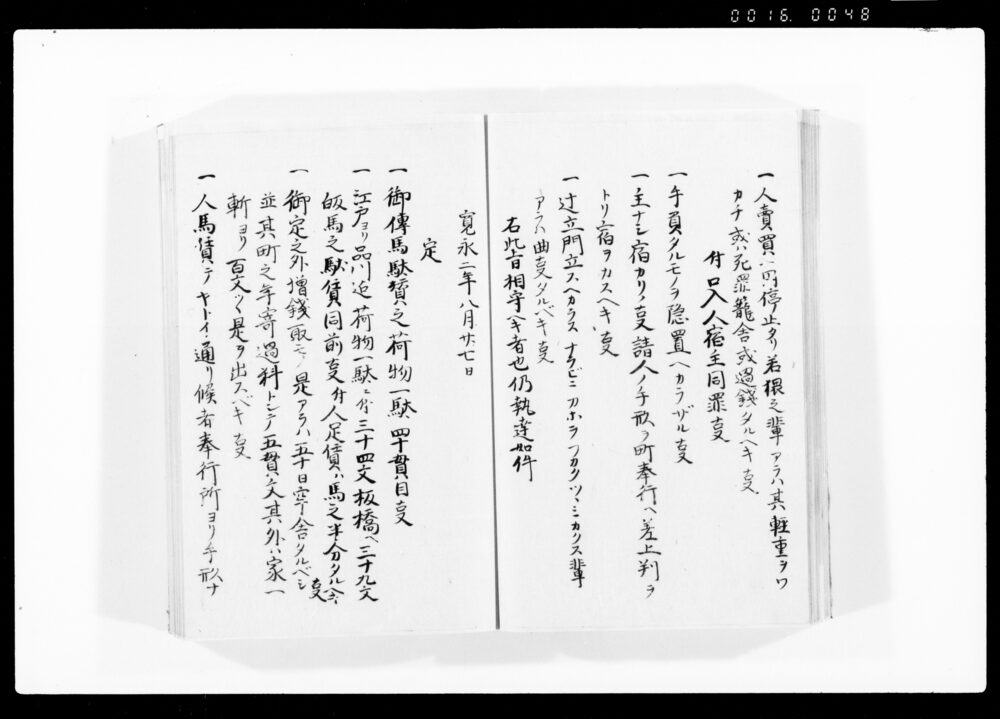 0016. 0048
一 人賣買一圓停止タリ若猥之輩アラハ其輕重ヲワ
カチ或ハ死罪籠舎或過錢タルヘキ事
付口入人宿主同罪事
一 手負タルモノヲ隠置ヘカラザル事
一 主ナシ宿カリノ事請人ノ手形ヲ町奉行ヘ差上判ヲ
トリ宿ヲカスヘキ事
一 辻立門立スヘカラス ナラビニカホヲフカクツヽミカクス輩
アラハ曲事タルベキ事
右此旨相守ヘキ者也仍執達如件
寛永二年八月廿七日
定
一 御傳馬駄賃之荷物一駄四十貫目事
一 江戸ヨリ品川迄荷物一駄ニ付三十四文板橋ヘ三十九文
皈馬之駄賃同前事付人足賃ハ馬之半分タルヘキ事
一 御定之外増錢取モノ是アラハ五十日牢舎タルベシ
並其町之年寄過料トシテ五貫文其外ハ家一
軒ヨリ百文ツヽ是ヲ出スベキ事
一 人馬賃ニテヤトイ通リ候者奉行所ヨリ手形ナ